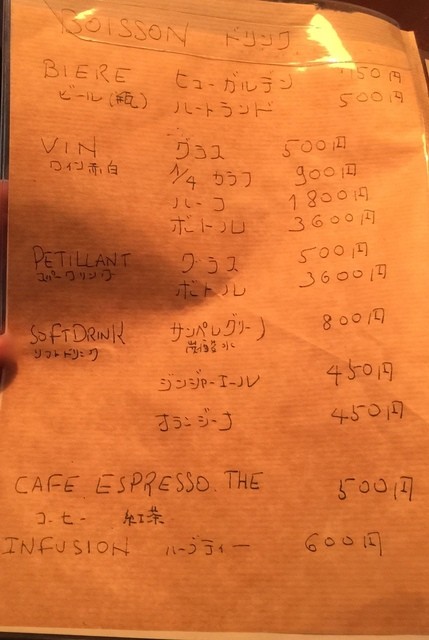 BOISSON ドリンク
BIERE ヒューガルデン 750円
ビール(瓶) ハートランド 500円
VIN グラス 500円
ワイン赤白 1/4 カラフ 900円
ハーフ 1800円
ボトル 3600円
PETILLANT グラス 500円
スパークリング ボトル 3600円
SOFT DRINK サンペレグリーノ 800円
ソフトドリンク 炭酸水
ジンジャーエール 450円
オランジーナ 450円
CAFE ESPRESSO. THE 500円
コーヒー 紅茶
INFUSION ハーブティー 600円